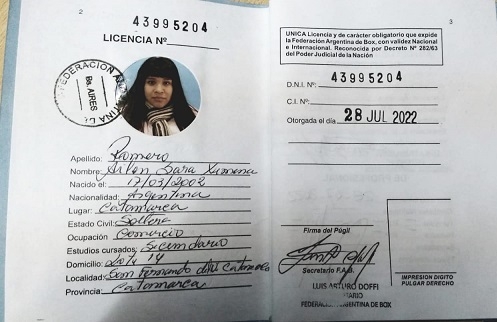 2
43995204
LICENCIA Nº
FEDERACION ARGENTINA DE
Bs. AIRES
Apellido: Romero
Nombre: Arlen Sara Ximena
Nacido el: 17/03/2002
Nacionalidad: Argentina
Lugar: Catamarca
Estado Civil: Soltera
Ocupación Comercio
Estudios cursados: Secundario
Domicilio: Lote 14
Localidad: San Fernando del Catamarca
Provincia: Catamarca
2
3
UNICA Licencia y de carácter obligatorio que expide
la Federación Argentina de Box, con validez Nacional
e Internacional. Reconocida por Decreto Nº 282/63
del Poder Judicial de la Nación
D.N.I. Nº: 43995204
C.I. Nº:
Otorgada el día 28 JUL 2022
Firma del Púgil
Secretario F.A.B.
LUIS ARTURO DOFFI
FEDERACION ARGENTINA DE BOX
IMPRESION DIGITO
PULGAR DERECHO